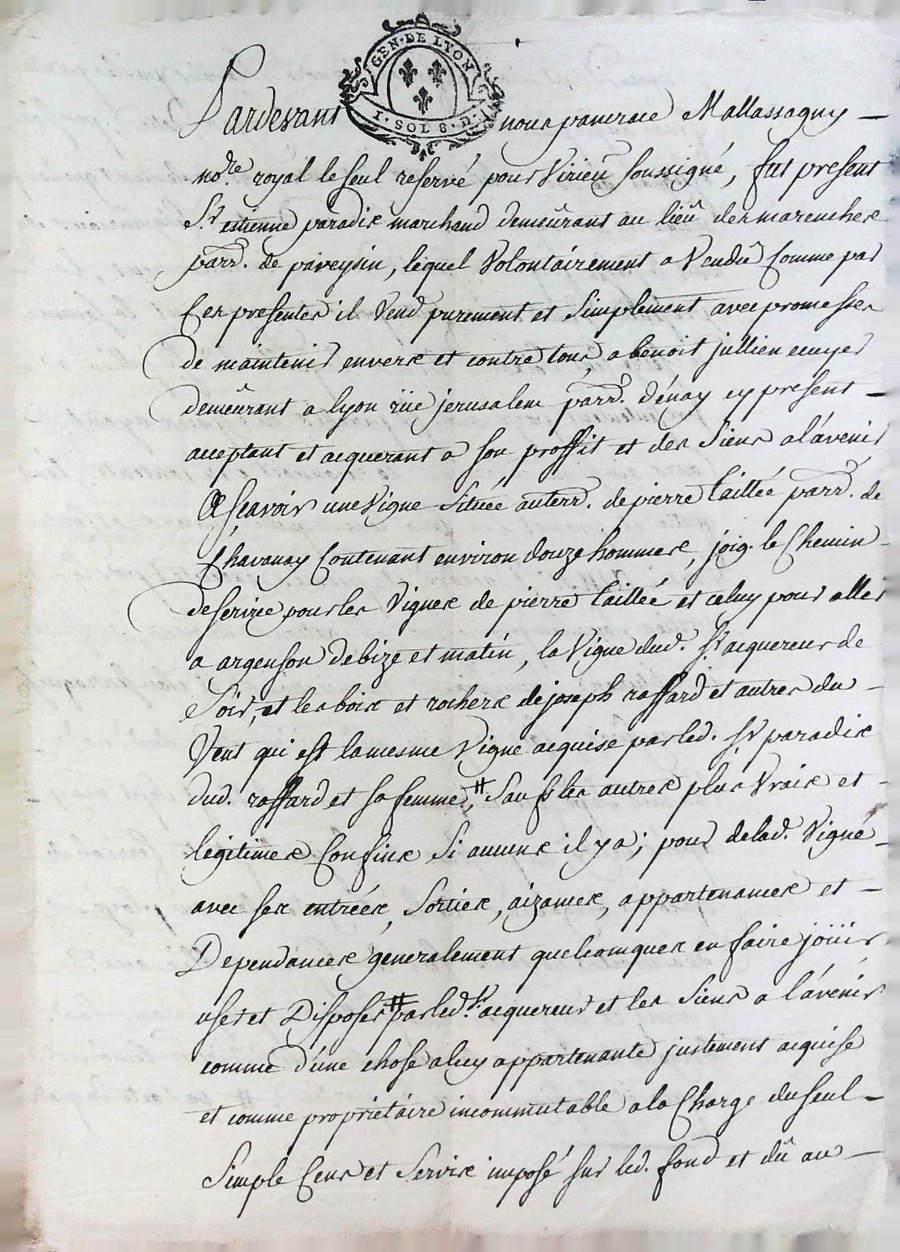 GEN·DE LYON
1·SOL 8·D.
Pardevant nous pancrace Mallassagny —
no.re royal le seul reservé pour Virieu soussigné, fut present
Sr etienne paradis marchand demeûrant au lieû des marenches
parr. de paveysin, lequel Volontairement a Vendû Comme par
Ces presentes il Vend purement et Simplement avec promesses
de maintenir envers et contre tous a benoit jullien ecuyer
demeûrant a lyon rüe jerusalem parr. d'énay cy présent —
acceptant et acquerant a son proffit et des Siens a l'avenir
A Scavoir une Vigne Située auterr. de pierre taillée parr. de
Chavanay Contenant environ douze hommes, joig. le Chemin
de servire pour les Vignes de pierre taillée et celuy pour aller
a argenson de bize et matin, la Vigne dud. Sr acquereur de
Soir, et les bois et rochers de joseph raffard et autres du —
Vent qui est la mesme Vigne acquise par led. Sr paradis
dud. raffard et sa femme, # Sauf les autres plus Vrais et —
légitimes Confins Si aucuns il y a; pour delad. Vigne —
avec ses entrées, Sorties, aizances, appartenances et —
Dependances generalement quelcomques en faire joüir
user et Disposer # par led. Sr acquereur et les Siens a l'avenir
comme d'une chose aluy appartenante justement acquise
et comme propriétaire incommutable a la Charge du Seul —
Simple Cens et Servis imposé sur led. fond et dû au —